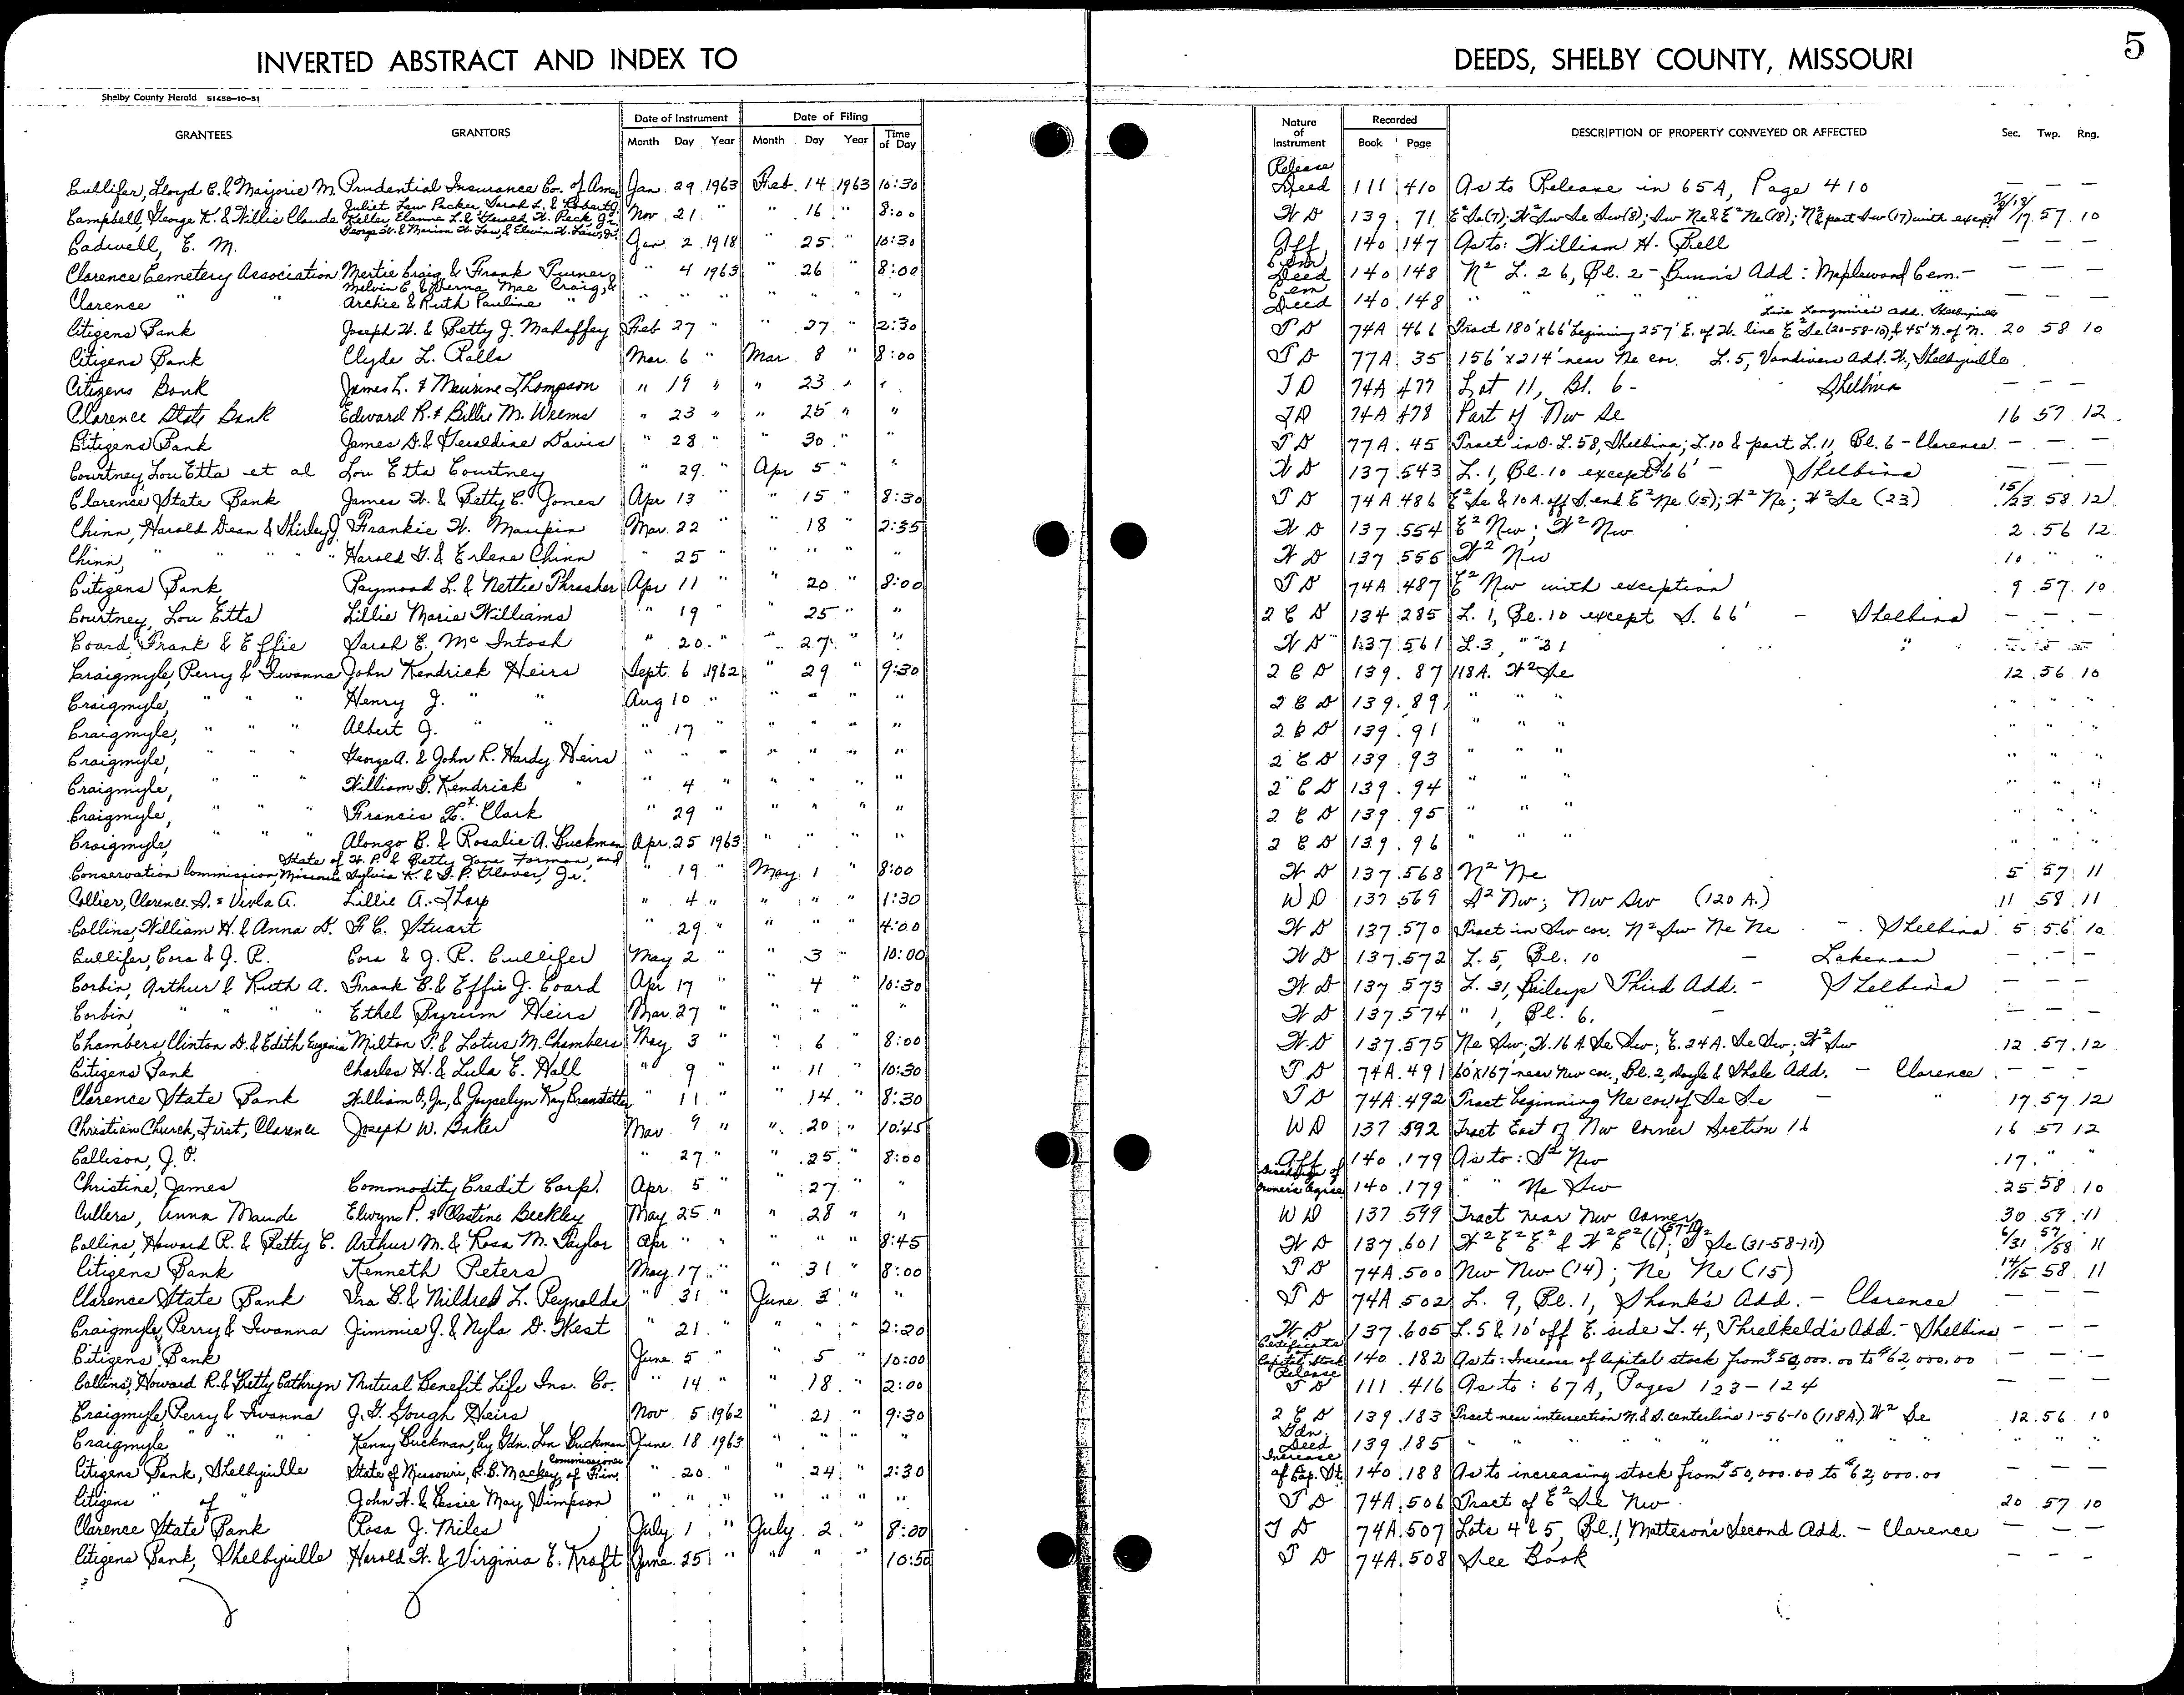 INVERTED ABSTRACT AND INDEX TO DEEDS, SHELBY COUNTY, MISSOURI 5
Shelby County Herald 51458-10-51
GRANTEES GRANTORS Date of Instrument Month Day Year Date of Filing Month Day Year Time of Day Nature of Instrument Recorded Book Page DESCRIPTION OF PROPERTY CONVEYED OR AFFECTED Sec. Twp. Rng.
Cullifer, Lloyd C. & Marjorie M. Prudential Insurance Co. of Amer Jan. 29 1963 Feb. 14 1963 10:30 Release Deed 111 410 As to Release in 65A, Page 410 — — —
Campbell, George K. & Willie Claude Juliet Law Packer, Sarah L. & Robert G. Keller, Elanna L. & Gerald W. Peck, Jr. George W. & Marion W. Law, & Elwin W. Law, Nov. 21 " " 16 " 8:00 W D 139 71 E² Se (7); W² Sw Se Sw (8); Sw Ne & E² Ne (18); N² & part Sw (17) with except 7/8/18/17 57 10
Cadwell, E. M. Jan 2 1918 " 25 " 10:30 Aff. 140 147 As to: William H. Bell — — —
Clarence Cemetery Association Mertie Craig & Frank Turner " 4 1963 " 26 " 8:00 Cem Deed 140 148 N² L. 26, Bl. 2 - Bunn's Add: Maplewood Cem. — — —
Clarence " " Melvin C. & Verna Mae Craig, & Archie & Ruth Pauline " " " " " " " " Cem Deed 140 148 " " " " " " — — —
Citizens Bank Joseph W. & Betty J. Mahaffey Feb 27 " " 27 " 2:30 T D 74A 466 Tract 180' x 66' begining 257' E. of W. line E² Se (20-58-10), & 45' N. of N. Line Longmires add. Shelbyville 20 58 10
Citizens Bank Clyde L. Ralls Mar. 6 " Mar. 8 " 8:00 T D 77A 35 156' x 214' near Ne cor. L. 5, Vandivers Add. W., Shelbyville
Citizens Bank James L. & Maurine Thompson " 19 " " 23 " " T D 74A 477 Lot 11, Bl. 6 - Shelbina — — —
Clarence State Bank Edward R. & Billie M. Weems " 23 " " 25 " " T D 74A 478 Part of Nw Se 16 57 12
Citizens Bank James D. & Geraldine Davis " 28 " " 30 " " T D 77A 45 Tract in O. L. 58, Shelbina; L. 10 & part L. 11, Bl. 6 - Clarence — — —
Courtney, Lou Etta et al Lou Etta Courtney " 29 " Apr 5 " " W D 137 543 L. 1, Bl. 10 except S 66' - Shelbina — — —
Clarence State Bank James W. & Betty C. Jones Apr 13 " " 15 " 8:30 T D 74A 486 E² Se & 10 A. off S. end E² Ne (15); W² Ne; W² Se (23) 15/23 58 12
Chinn, Harold Dean & Shirley J. Frankie W. Maupin Mar. 22 " " 18 " 2:35 W D 137 554 E² Nw; W² Nw 2 56 12
Chinn, " " " " Harold G. & Erlene Chinn " 25 " " " " " W D 137 555 W² Nw 10 " "
Citizens Bank Raymond L. & Nettie Thrasher Apr 11 " " 20 " 8:00 T D 74A 487 E² Nw with exception 9 57 10
Courtney, Lou Etta Lillie Marie Williams " 19 " " 25 " " 2 C D 134 285 L. 1, Bl. 10 except S. 66' - Shelbina — — —
Coard, Frank & Effie Sarah E. McIntosh " 20 " " 27 " " W D 137 561 L. 3, " " 31 " — — —
Craigmyle, Perry & Iwanna John Kendrick Heirs Sept. 6 1962 " 29 " 9:30 2 C D 139 87 118A. W² Se 12 56 10
Craigmyle, " " " Henry J. " " Aug 10 " " " " " 2 C D 139 89 " " " " " "
Craigmyle, " " " Albert J. " " " 17 " " " " " 2 C D 139 91 " " " " " "
Craigmyle, " " " George A. & John R. Hardy Heirs " " " " " " " 2 C D 139 93 " " " " " "
Craigmyle, " " " William B. Kendrick " " 4 " " " " " 2 C D 139 94 " " " " " "
Craigmyle, " " " Francis X. Clark " 29 " " " " " 2 C D 139 95 " " " " " "
Craigmyle, " " " Alonzo B. & Rosalie A. Buckman Apr. 25 1963 " " " " 2 C D 139 96 " " " " " "
Conservation Commission, State of Missouri W. P. & Betty Jane Forman, and Sylvia K. & T. P. Glover, Jr. " 19 " May 1 " 8:00 W D 137 568 N² Ne 5 57 11
Collier, Clarence S. & Viola A. Lillie A. Tharp " 4 " " " " 1:30 W D 137 569 S² Nw; Nw Sw (120 A.) 11 58 11
Collins, William H. & Anna D. F. C. Stuart " 29 " " " " 4:00 W D 137 570 Tract in Sw cor. N² Sw Ne Ne - Shelbina 5 56 10
Cullifer, Cora & J. R. Cora & J. R. Cullifer May 2 " " 3 " 10:00 W D 137 572 L. 5, Bl. 10 - Lakenan — — —
Corbin, Arthur & Ruth A. Frank B. & Effie J. Coard Apr 17 " " 4 " 10:30 W D 137 573 L. 31, Baileys Third Add. - Shelbina — — —
Corbin, " " " " Ethel Byrum Heirs Mar. 27 " " " " " W D 137 574 " 1, Bl. 6. - " — — —
Chambers Clinton D. & Edith Eugenia Milton P. & Lotus M. Chambers May 3 " " 6 " 8:00 W D 137 575 Ne Sw; W. 16 A. Se Sw; E. 24 A. Se Sw; W² Sw 12 57 12
Citizens Bank Charles H. & Lula E. Hall " 9 " " 11 " 10:30 T D 74A 491 60' x 167' near Nw cor., Bl. 2, Doyle & Shale Add. - Clarence — — —
Clarence State Bank William O., Jr., & Joycelyn Kay Branstetter " 11 " " 14 " 8:30 T D 74A 492 Tract beginning Ne cor of Se Se - " 17 57 12
Christian Church, First, Clarence Joseph W. Baker Mar. 9 " " 20 " 10:45 W D 137 592 Tract East of Nw Corner Section 16 16 57 12
Collison, J. O. " 27 " " 25 " 8:00 Aff. 140 179 As to: S² Nw 17 " "
Christine, James Commodity Credit Corp. Apr. 5 " " 27 " " Owner's Agree 140 179 " " Ne Sw 25 58 10
Cullers, Anna Maude Elwyn P. & Clastine Beckley May 25 " " 28 " " W D 137 599 Tract near Nw Corner 30 59 11
Collins, Howard R. & Betty C. Arthur M. & Rosa M. Taylor Apr. " " " " " 8:45 W D 137 601 W² E² E² & W² E² (6); S² Se (31-58-11) 6/31 57/58 11
Citizens Bank Kenneth Peters May 17 " " 31 " 8:00 T D 74A 500 Nw Nw (14); Ne Ne (15) 14/15 58 11
Clarence State Bank Ira B. & Mildred L. Reynolds " 31 " June 3 " " T D 74A 502 L. 9, Bl. 1, Shank's Add. - Clarence — — —
Craigmyle, Perry & Iwanna Jimmie J. & Nyla D. West " 21 " " " " 2:20 W D 137 605 L. 5 & 10' off E. side L. 4, Threlkeld's Add. - Shelbina — — —
Citizens Bank June 5 " " 5 " 10:00 Certificate Capital Stock 140 182 As to: Increase of Capital stock from $50,000.00 to $62,000.00 — — —
Collins, Howard R. & Betty Cathryn Mutual Benefit Life Ins. Co. " 14 " " 18 " 2:00 Release T D 111 416 As to: 67A, Pages 123-124 — — —
Craigmyle, Perry & Iwanna J. G. Gough Heirs Nov. 5 1962 " 21 " 9:30 2 C D 139 183 Tract near intersection N. & S. centerline 1-56-10 (118A.) W² Se 12 56 10
Craigmyle " " " Kenny Buckman, by Gdn. Len Buckman June 18 1963 " " " " Gdn. Deed 139 185 " " " " " " " " "
Citizens Bank, Shelbyville State of Missouri, R. B. Mackey, Commissioner of Fin. " 20 " " 24 " 2:30 Increase of Cap. St. 140 188 As to increasing stock from $50,000.00 to $62,000.00 — — —
Citizens " of " John W. & Bessie May Simpson " " " " " " " T D 74A 506 Tract of E² Se Nw 20 57 10
Clarence State Bank Rosa J. Miles July 1 " July 2 " 8:00 T D 74A 507 Lots 4 & 5, Bl. 1, Matteson's Second Add. - Clarence — — —
Citizens Bank, Shelbyville Harold W. & Virginia E. Kraft June 25 " " " " 10:50 T D 74A 508 See Book — — —